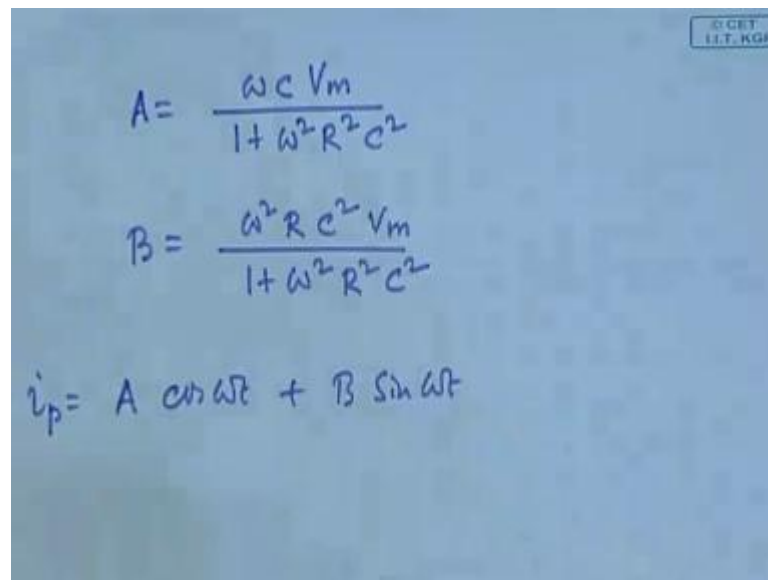 © CET
I.I.T. KGP
A = ωC Vm / 1 + ω² R² C²
B = ω² R C² Vm / 1 + ω² R² C²
ip = A cos ωt + B sin ωt